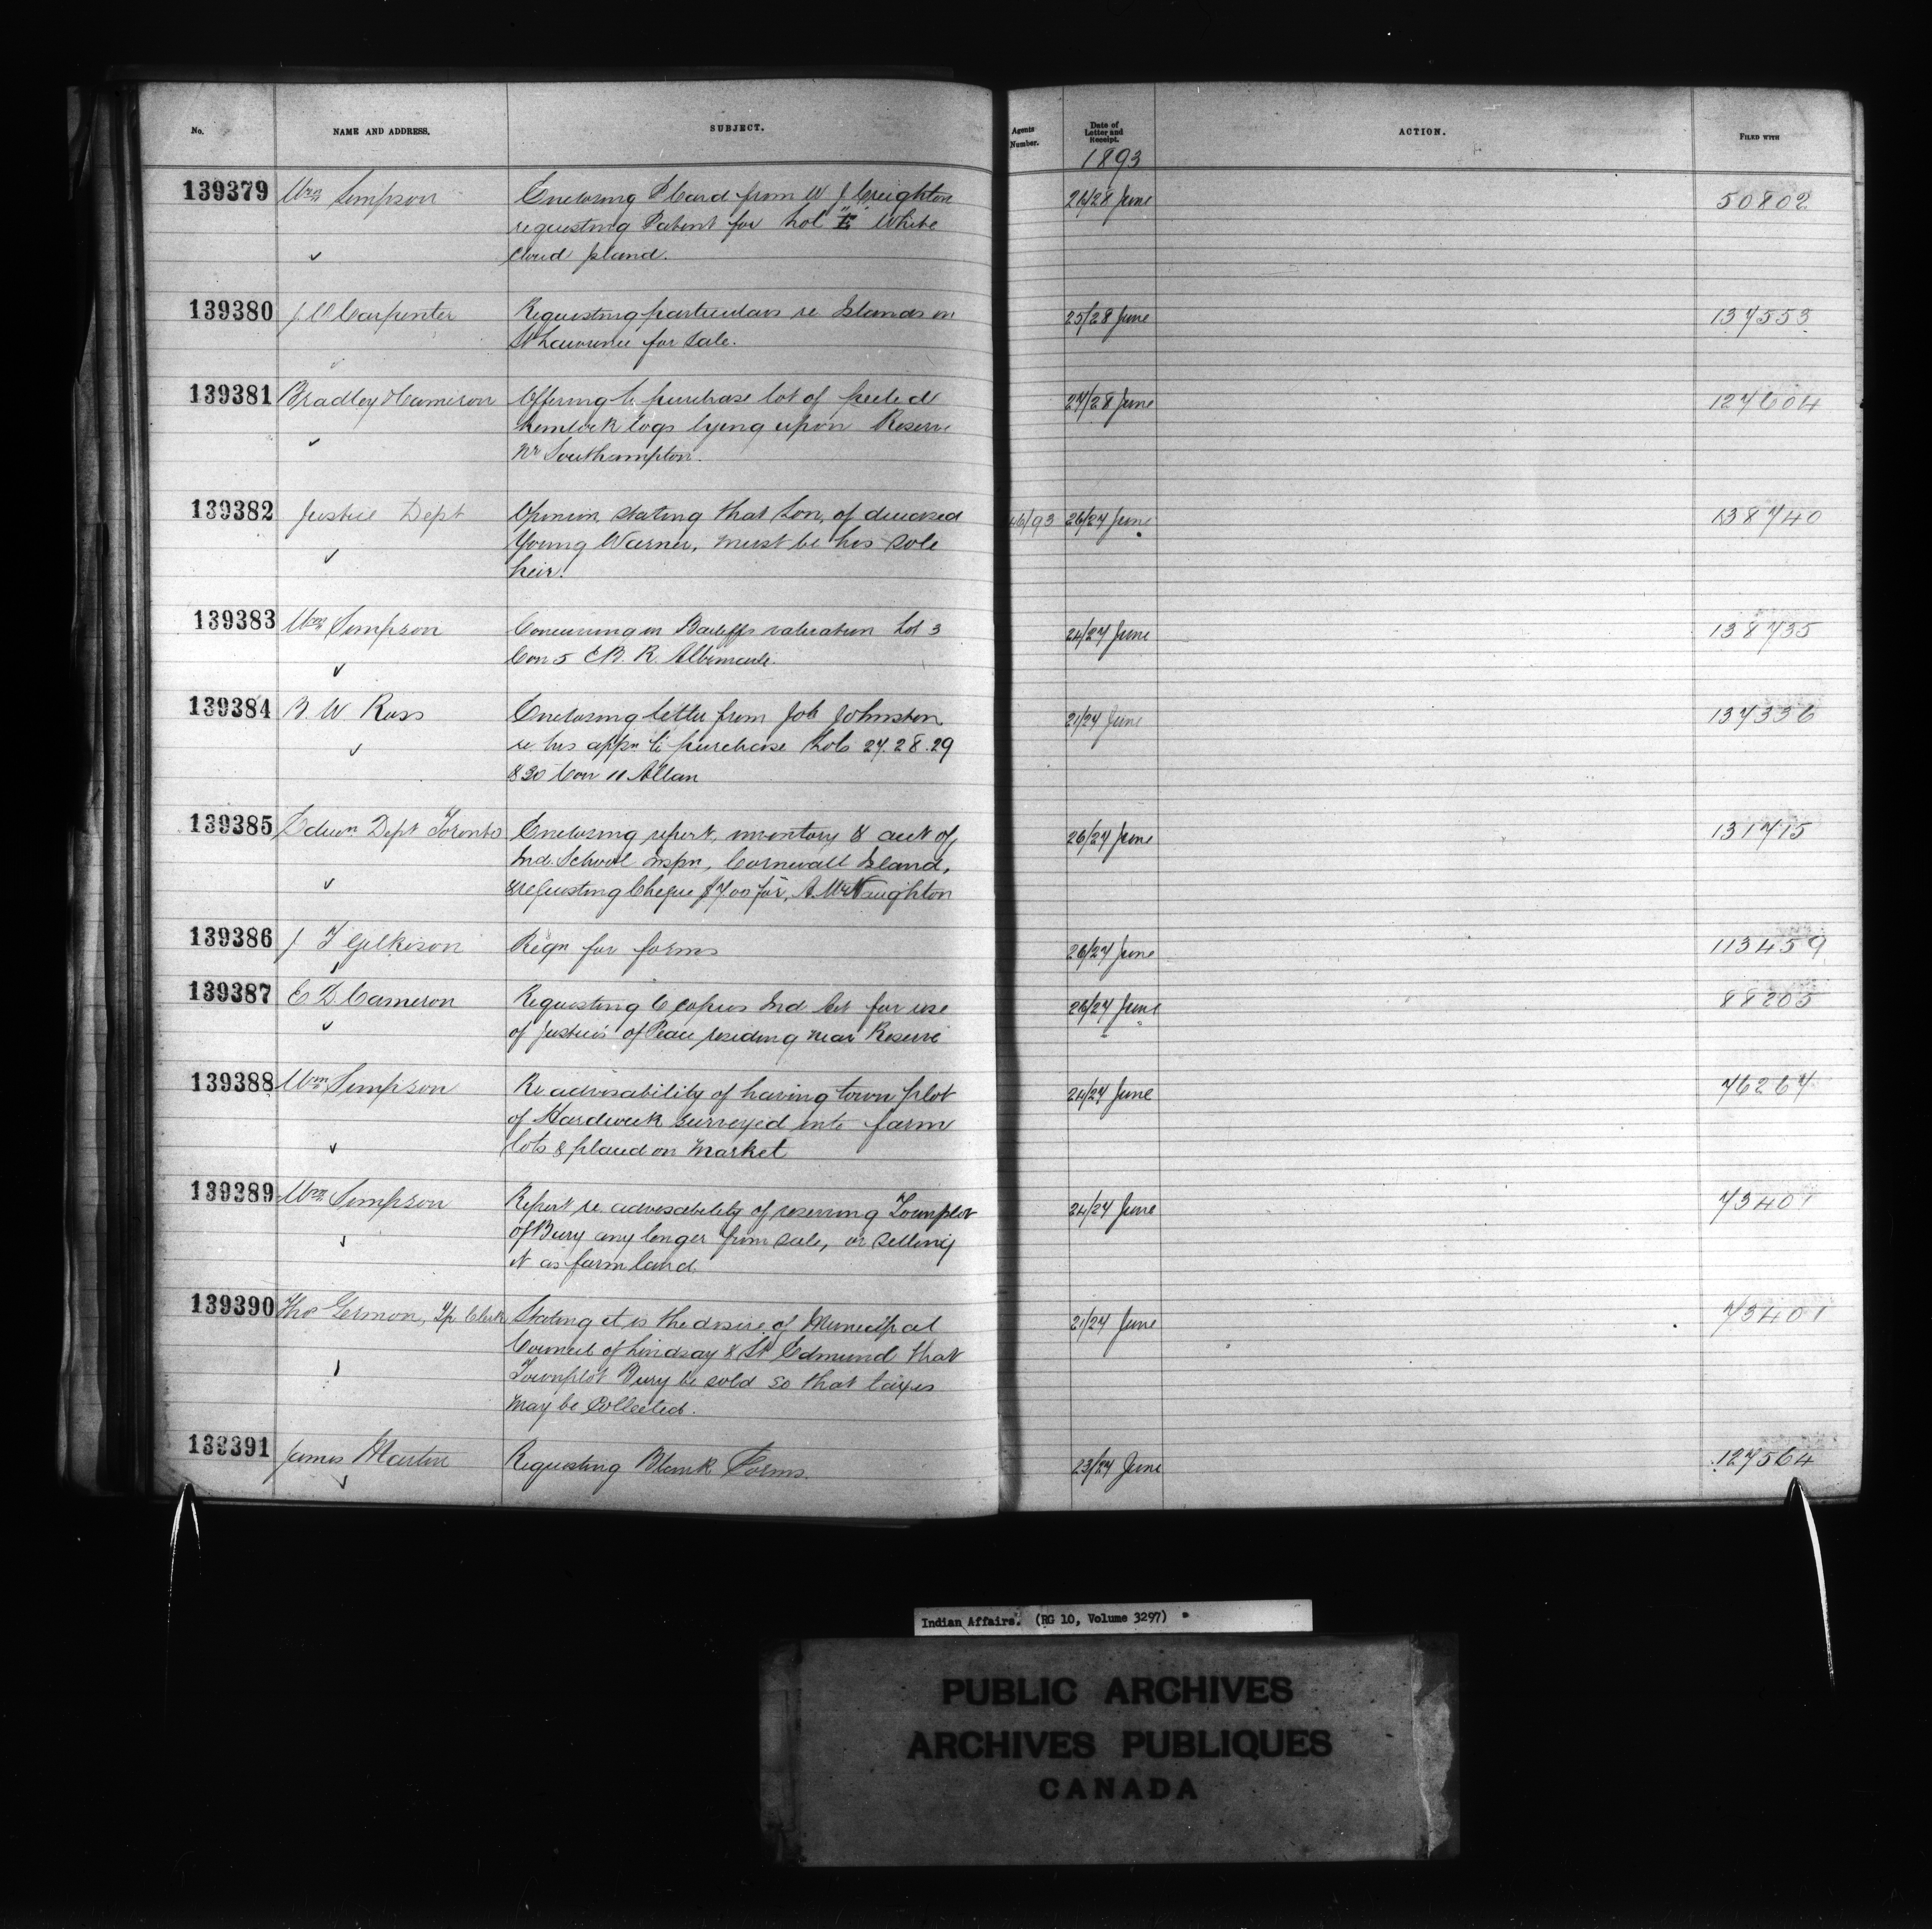 No. NAME AND ADDRESS. SUBJECT. Agents Number. Date of Letter and Receipt. ACTION. FILED WITH
1893
139379 Wm Simpson Enclosing P Card from W J Creighton 26/28 June 50802
requesting Patent for Lot "E" White
Cloud Island.
139380 J W Carpenter Requesting particulars re Islands in 25/28 June 137553
St Lawrence for sale.
139381 Bradley & Cameron Offering to purchase lot of peeled 27/28 June 127604
hemlock logs lying upon Reserve
nr Southampton.
139382 Justice Dept Opinion, stating that Son, of deceased 46/93 26/27 June 138740
Young Warner, must be his sole
heir.
139383 Wm Simpson Concurring in Bailiffs valuation Lot 3 24/27 June 138735
Con 5 E.B.R. Albemarle.
139384 B. W. Ross Enclosing letter from Job Johnston 21/27 June 137336
re his appn to purchase Lots 27. 28. 29
& 30 Con 11 Allan
139385 Educn Dept Toronto Enclosing report, inventory & acct of 26/27 June 131715
Ind. School inspn, Cornwall Island,
& requesting Cheque $7.00 for, A. McNaughton
139386 J T Gilkison Reqn for forms 26/27 June 113459
139387 E D Cameron Requesting 6 copies Ind Act for use 26/27 June 88205
of Justices of Peace residing near Reserve
139388 Wm Simpson Re advisability of having town plot 24/27 June 76267
of Hardwick surveyed into farm
lots & placed on Market
139389 Wm Simpson Report re advisability of reserving Townplot 24/27 June 73401
of Bury any longer from sale, or selling
it as farm land.
139390 Thos Gernon, Tp Clerk Stating it is the desire of Municipal 21/27 June 73401
Council of Lindsay & St Edmund that
Townplot Bury be sold so that taxes
may be Collected.
139391 James Martin Requesting Blank Forms. 23/27 June 127564
Indian Affairs. (RG 10, Volume 3297)
PUBLIC ARCHIVES
ARCHIVES PUBLIQUES
CANADA